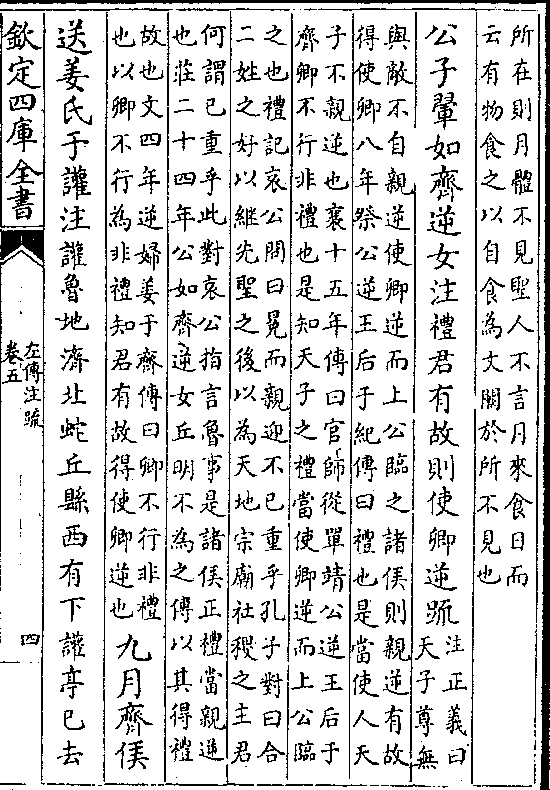 所在則月體不見聖人不言月來食日而
云有物食之以自食為文闕於所不見也
公子翬如齊逆女注禮君有故則使卿逆疏
注正義曰
天子尊無
與敵不自親逆使卿逆而上公臨之諸侯則親逆有故
得使卿八年祭公逆王后于紀傳曰禮也是當使人天
子不親逆也襄十五年傳曰官師從單靖公逆王后于
齊卿不行非禮也是知天子之禮當使卿逆而上公臨
之也禮記哀公問曰冕而親迎不已重乎孔子對曰合
二姓之好以繼先聖之後以為天地宗廟社稷之主君
何謂已重乎此對哀公指言魯事是諸侯正禮當親逆
也莊二十四年公如齊逆女丘明不為之傳以其得禮
故也文四年逆婦姜于齊傳曰卿不行非禮
也以卿不行為非禮知君有故得使卿逆也
九月齊侯
送姜氏于讙注讙魯地濟北蛇丘縣西有下讙亭已去
欽定四庫全書
左傳注疏
卷五
四